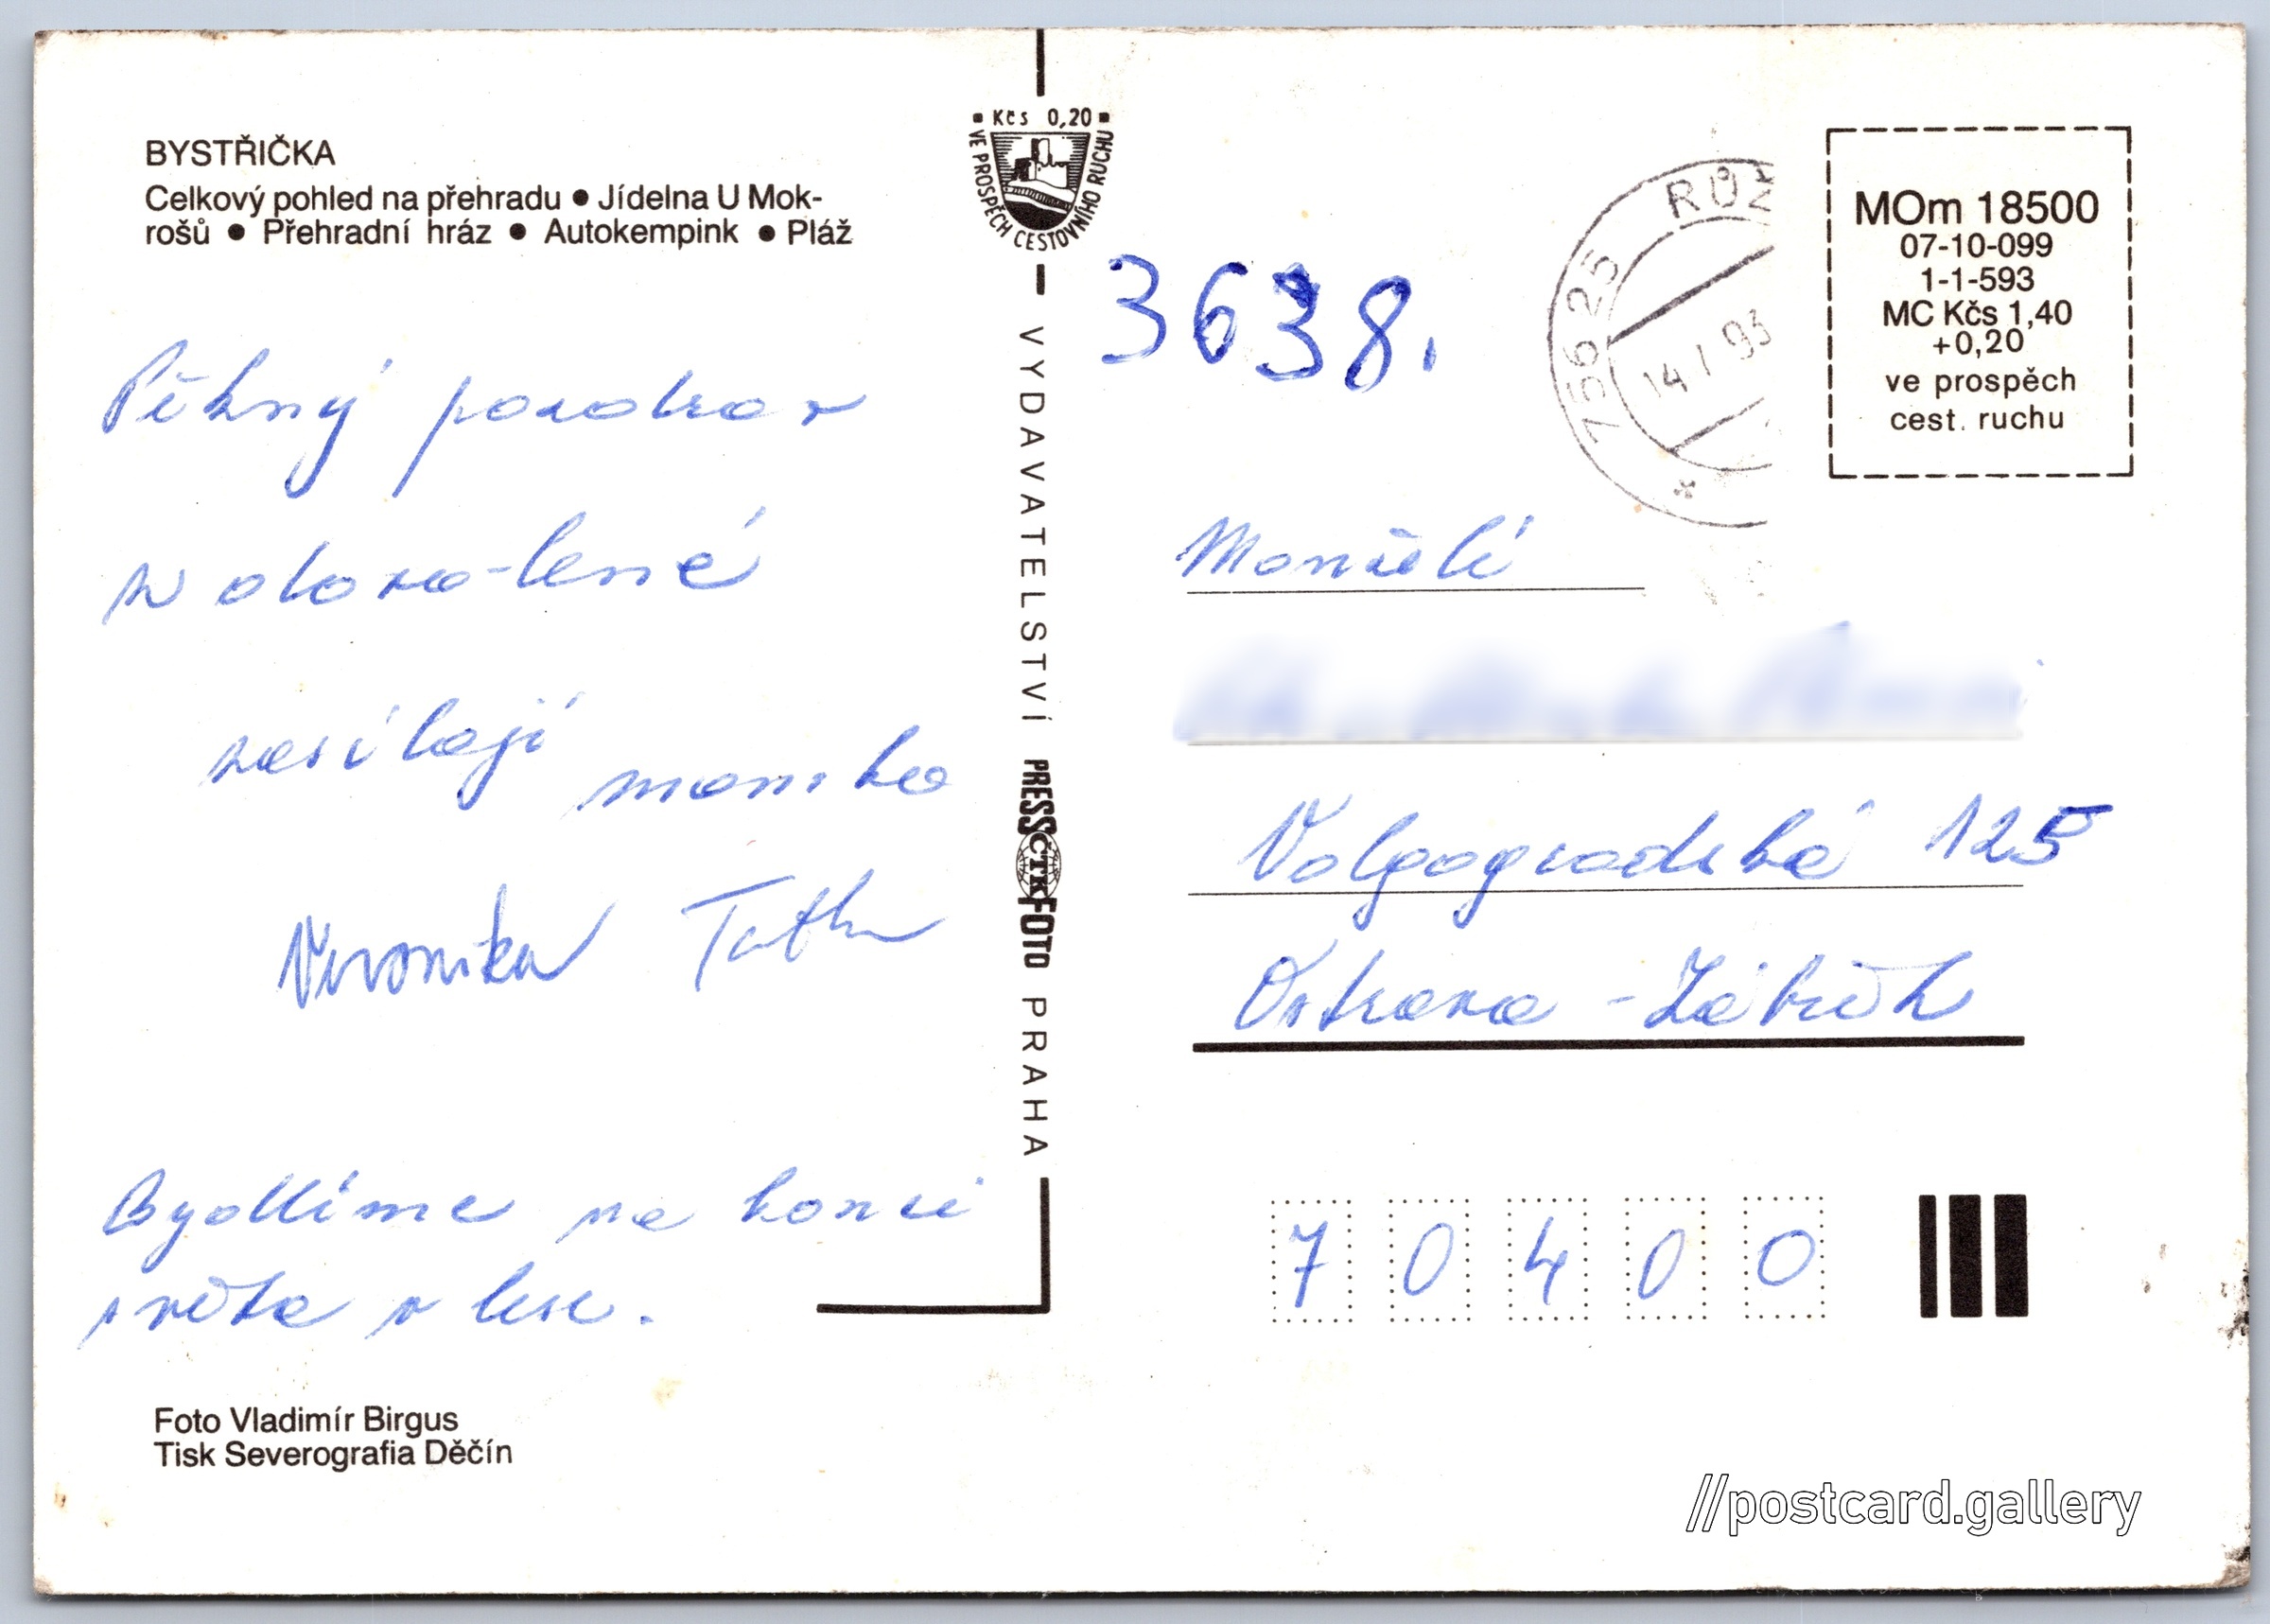 BYSTŘIČKA
Celkový pohled na přehradu ● Jídelna U Mok-
rošů ● Přehradní hráz ● Autokempink ● Pláž
Kčs 0,20
VE PROSPĚCH CESTOVNÍHO RUCHU
3638.
75625 RŮŽ
14 1 93
MOm 18500
07-10-099
1-1-593
MC Kčs 1,40
+0,20
ve prospěch
cest. ruchu
Pěkný pozdrav
z dovo-lené
zasílají mamka
Veronika
Bydlíme na konci
světa v lese.
VYDAVATELSTVÍ PRESSČTKFOTO PRAHA
Manželé
Volgogradská 125
Ostrava - Zábřeh
70400
Foto Vladimír Birgus
Tisk Severografia Děčín
//postcard.gallery